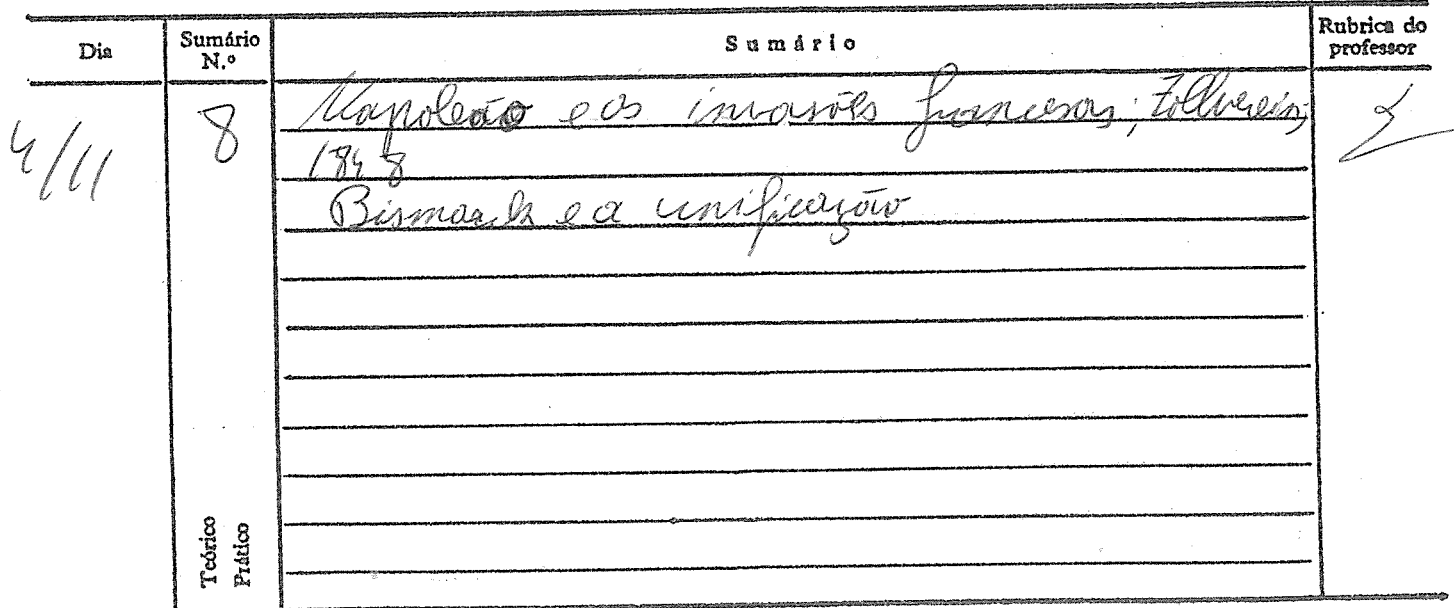 Dia Sumário N.º Sumário Rubrica do professor
4/11 8 Napoleão e as invasões francesas; Zollverein;
1848
Bismark e a unificação
Teórico
Prático